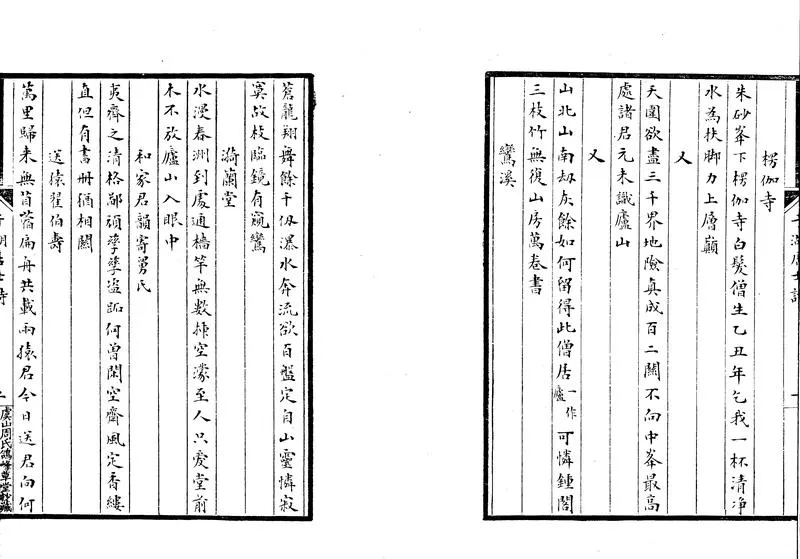 楞伽寺
朱砂峯下楞伽寺白髮僧生乙丑年乞我一杯清淨
水為扶脚力上層巔
又
天圍欲盡三千界地險真成百二關不向中峯最高
處諸君元未識廬山
又
山北山南刼灰餘如何留得此僧居一作廬可憐鍾閣
三枝竹無復山房萬卷書
鸞溪
蒼龍翔舞餘千仭瀑水奔流欲百盤定自山靈憐寂
寞故枝臨鏡有窺鸞
漪蘭堂
水漫春洲到處通檣竿無數揷空濛至人只愛堂前
木不放廬山入眼中
和家君韻寄舅氏
夷齊之清格鄙頑孳孳盜跖何曾閑空齋風定香縷
直但有書冊猶相關
送猿翟伯壽
萬里歸来無苜蓿扁舟共載兩猿君今日送君向何
虞山周氏鴿峰草堂鈔藏